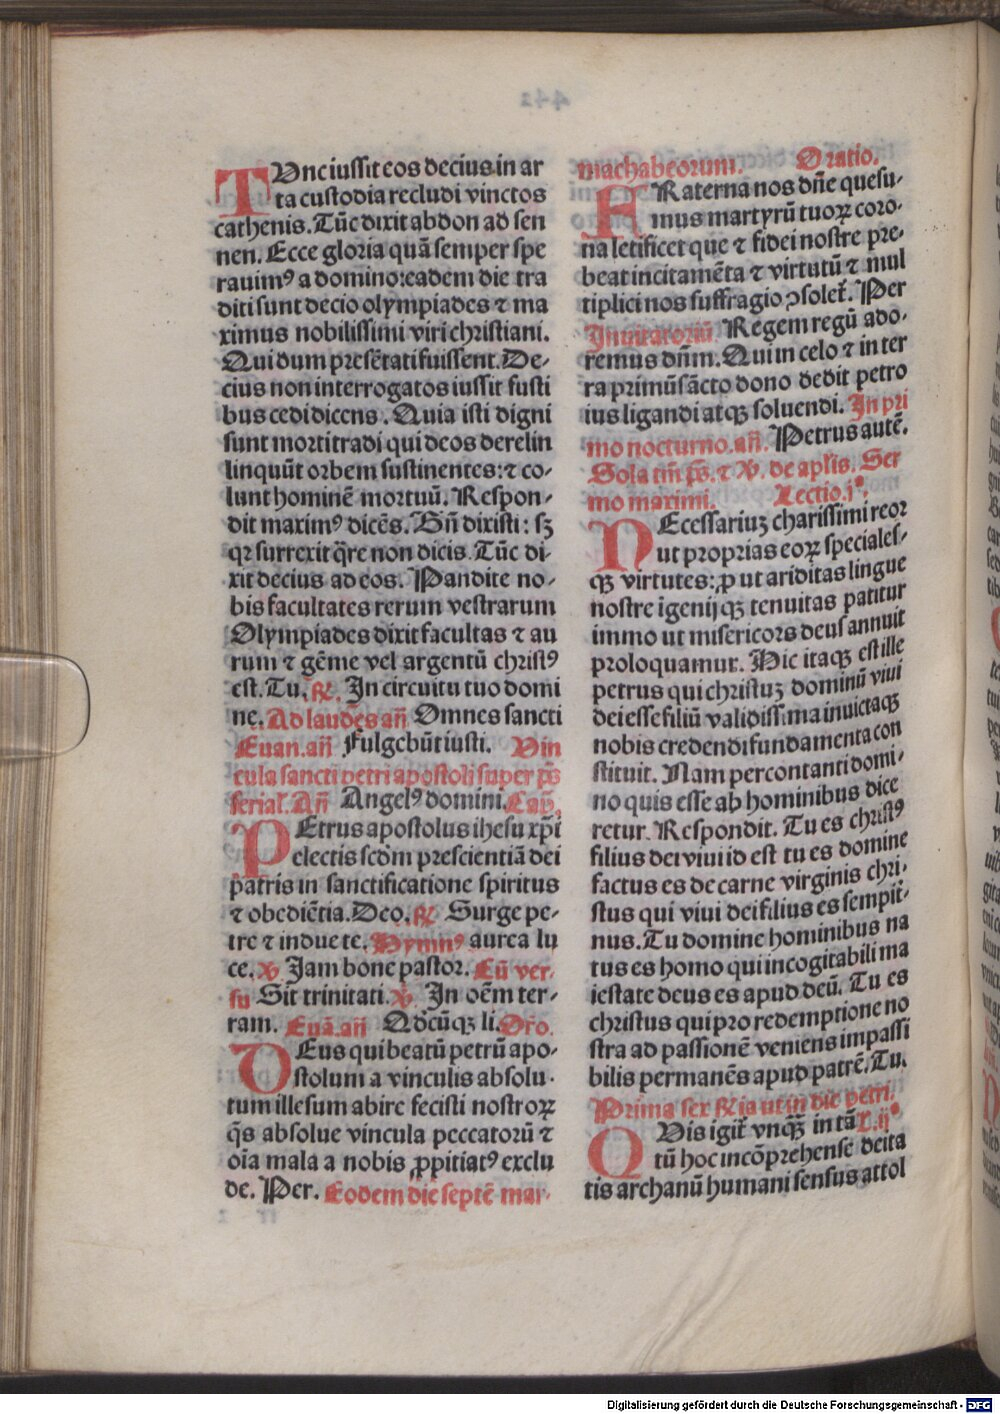 TVnc iussit eos decius in ar
ta custodia recludi vinctos
cathenis. Tūc dixit abdon ad sen
nen. Ecce gloria quā semper spe
rauimꝰ a domino: eadem die tra
diti sunt decio olympiades ⁊ ma
ximus nobilissimi viri christiani.
Qui dum presētati fuissent. De-
cius non interrogatos iussit fusti
bus cedi dicens. Quia isti digni
sunt morti tradi qui deos derelin
linquūt orbem sustinentes: ⁊ co-
lunt hominē mortuū. Respon-
dit maximꝰ dicēs. Bn̄ dixisti: sꝫ
qꝛ surrexit q̄re non dicis. Tūc di-
xit decius ad eos. Pandite no-
bis facultates rerum vestrarum
Olympiades dixit facultas ⁊ au
rum ⁊ gēme vel argentū christꝰ
est. Tu. ℟. In circuitu tuo domi
ne. Ad laudes an̄ Omnes sancti
Euan. an̄ Fulgebūt iusti. Vin
cula sancti petri apostoli super ps̄
serial. An̄ Angelꝰ domini. Cap̄.
PEtrus apostolus ihesu xp̄i
electis scdm prescientiā dei
patris in sanctificatione spiritus
⁊ obediētia. Deo. ℟ Surge pe-
tre ⁊ indue te. Hymnꝰ aurea lu
ce. ℣ Jam bone pastor. Cū ver-
su Sit trinitati. ℣. In oēm ter-
ram. Euā. an̄ Qdcūqꝫ li. Oro.
DEus qui beatū petrū apo-
stolum a vinculis absolu-
tum illesum abire fecisti nostroꝝ
q̄s absolue vincula peccatorū ⁊
oīa mala a nobis ꝓpitiatꝰ exclu
de. Per. Eodem die septē mar-
machabeorum. Oratio.
FRaterna nos dn̄e quesu-
mus martyrū tuoꝝ coro-
na letificet que ⁊ fidei nostre pre-
beat incitamēta ⁊ virtutū ⁊ mul
tiplici nos suffragio ꝯsolet᷑. Per
Inuitatoriū Regem regū ado-
remus dn̄m. Qui in celo ⁊ in ter
ra primū sācto dono dedit petro
ius ligandi atqꝫ soluendi. In pri
mo nocturno. an̄. Petrus autē.
Sola tm̄ ps̄. ⁊ ℣. de aplis. Ser
mo maximi. Lectio. jᵃ.
NEcessariuꝫ charissimi reor
ut proprias eoꝝ speciales-
qꝫ virtutes: ꝓut ariditas lingue
nostre īgenijqꝫ tenuitas patitur
immo ut misericors deus annuit
proloquamur. Hic itaqꝫ est ille
petrus qui christuꝫ dominū viui
dei esse filiū validissima inuictaqꝫ
nobis credendi fundamenta con
stituit. Nam percontanti domi-
no quis esse ab hominibus dice
retur. Respondit. Tu es christꝰ
filius dei viui id est tu es domine
factus es de carne virginis chri-
stus qui viui dei filius es sempit᷑-
nus. Tu domine hominibus na
tus es homo qui incogitabili ma
iestate deus es apud deū. Tu es
christus qui pro redemptione no
stra ad passionē veniens impassi
bilis permanēs apud patrē. Tu.
Prima ser ℟ia ut in die petri.
QVis igit᷑ vnqꝫ̄ in tā L. ijᵃ
tū hoc incōprehense deita
tis archanū humani sensus attol